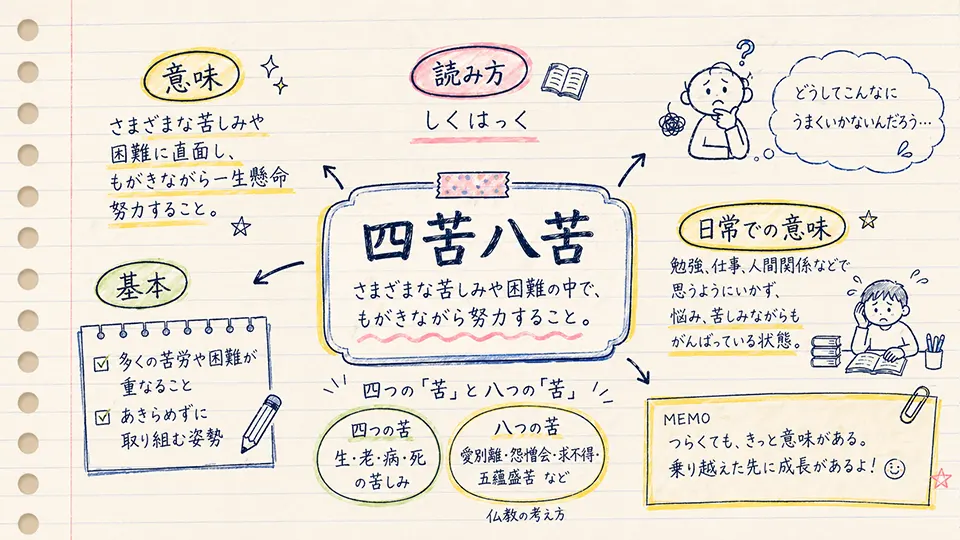 意味
さまざまな苦しみや
困難に直面し、
もがきながら一生懸命
努力すること。
読み方
しくはっく
?
どうしてこんなに
うまくいかないんだろう…
四苦八苦
さまざまな苦しみや困難の中で、
もがきながら努力すること。
基本
多くの苦労や困難が
重なること
あきらめずに
取り組む姿勢
日常での意味
勉強、仕事、人間関係などで
思うようにいかず、
悩み、苦しみながらも
がんばっている状態。
四つの「苦」と八つの「苦」
四つの苦
生・老・病・死
の苦しみ
八つの苦
愛別離・怨憎会・求不得・
五蘊盛苦 など
仏教の考え方
MEMO
つらくても、きっと意味がある。
乗り越えた先に成長があるよ!